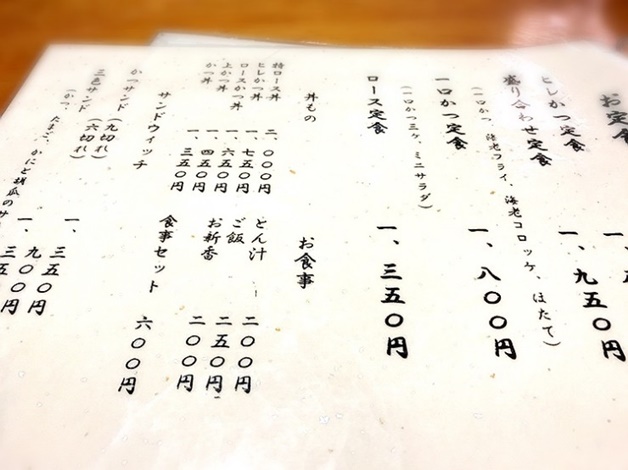 お定食
ヒレかつ定食
盛り合わせ定食 一、九五〇円
(一口かつ、海老フライ、海老コロッケ、ほたて)
一口かつ定食 一、八〇〇円
(一口かつ三ケ、ミニサラダ)
ロース定食 一、三五〇円
丼もの
特ロース丼 二、〇〇〇円
ヒレかつ丼 一、七五〇円
ロースかつ丼 一、六五〇円
上かつ丼 一、四五〇円
かつ丼 一、三五〇円
サンドウィッチ
かつサンド(九切れ) 一、三五〇円
三色サンド(六切れ) 一、九〇〇円
(かつ、たまご、かにと胡瓜のサ
三五〇円
お食事
とん汁 二〇〇円
ご飯 二五〇円
お新香 二〇〇円
食事セット 六〇〇円